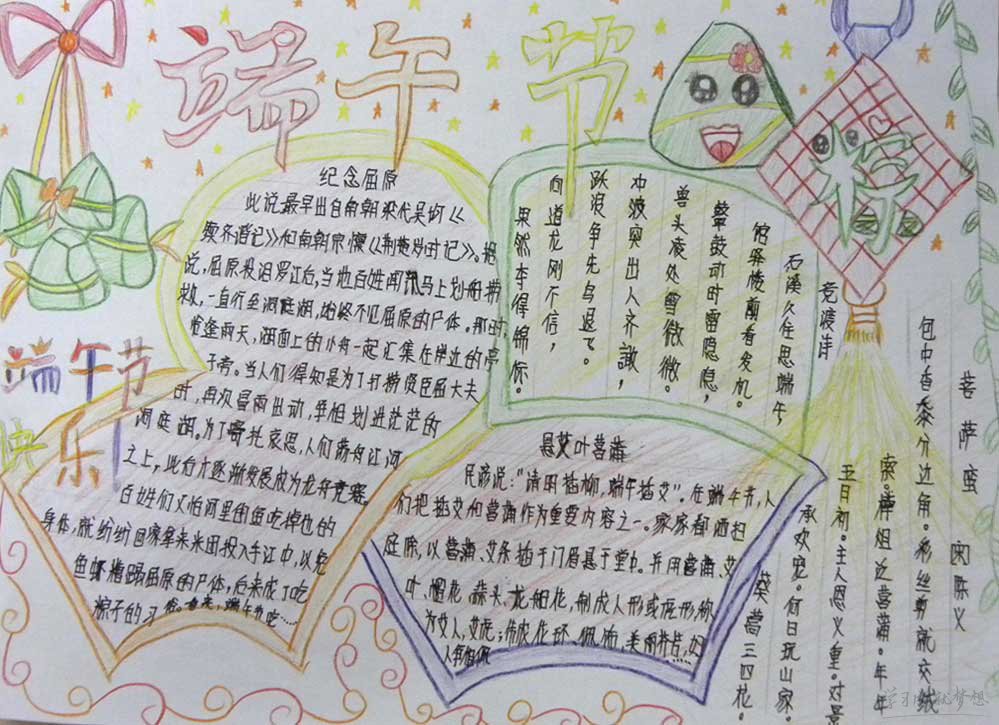 端午节
粽
端午节
快乐
纪念屈原
此说最早出自南朝梁代吴均《
续齐谐记》和南朝宗懔《荆楚岁时记》。据
说，屈原投汨罗江后，当地百姓闻讯马上划船捞
救，一直行至洞庭湖，始终不见屈原的尸体。那时，
恰逢雨天，湖面上的小舟一起汇集在岸边的亭
子旁。当人们得知是为了打捞贤臣屈大夫
时，再次冒雨出动，争相划进茫茫的
洞庭湖。为了寄托哀思，人们荡舟江河
之上，此后才逐渐发展成为龙舟竞赛。
百姓们又怕河里的鱼吃掉他的
身体，就纷纷回家拿来米团投入手江中，以免
鱼虾糟蹋屈原的尸体，后来成了吃
粽子的习
竞渡诗
石溪久住思端午，
馆驿楼前看发机。
鼙鼓动时雷隐隐，
兽头凌处雪微微。
冲波突出人齐譀，
跃浪争先鸟退飞。
向道龙刚不信，
果然夺得锦标。
悬艾叶菖蒲
民谚说：“清明插柳，端午插艾”。在端午节，人
们把插艾和菖蒲作为重要内容之一。家家都洒扫
庭除，以菖蒲、艾条插于门眉悬于堂中。并用菖蒲、艾
叶、榴花、蒜头、龙船花，制成人形或虎形，称
为艾人，艾虎；制成花环、佩饰，美丽芬芳，妇
人争相佩
菩萨蛮
陈义
包中香黍分边角。彩丝剪就交绒
索。樽俎泛菖蒲。年年
五日初。主人恩义重。对景
承欢宠。何日玩山家。
葵蒿三四花。
学习成就梦想